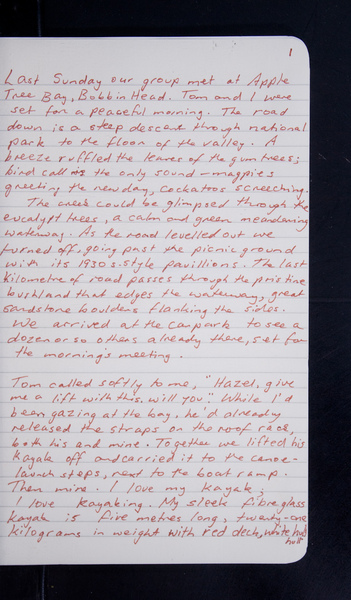 1
Last Sunday our group met at Apple
Tree Bay, Bobbin Head. Tom and I were
set for a peaceful morning. The road
down is a steep descent through national
park to the floor of the valley. A
breeze ruffled the leaves of the gum trees;
bird call the only sound - magpies
greeting the new day, cockatoos screeching.
The creek could be glimpsed through the
eucalypt trees, a calm and green meandering
waterway. As the road levelled out we
turned off, going past the picnic ground
with its 1930s-style pavillions. The last
kilometre of road passes through the pristine
bushland that edges the waterway, great
sandstone boulders flanking the sides.
We arrived at the carpark to see a
dozen or so others already there, set for
the morning's meeting.
Tom called softly to me, "Hazel, give
me a lift with this, will you." While I'd
been gazing at the bay, he'd already
released the straps on the roof rack,
both his and mine. Together we lifted his
kayak off and carried it to the canoe-
launch steps, next to the boat ramp.
Then mine. I love my kayak;
I love kayaking. My sleek fibreglass
kayak is five metres long, twenty-one
kilograms in weight with red deck, white
hull